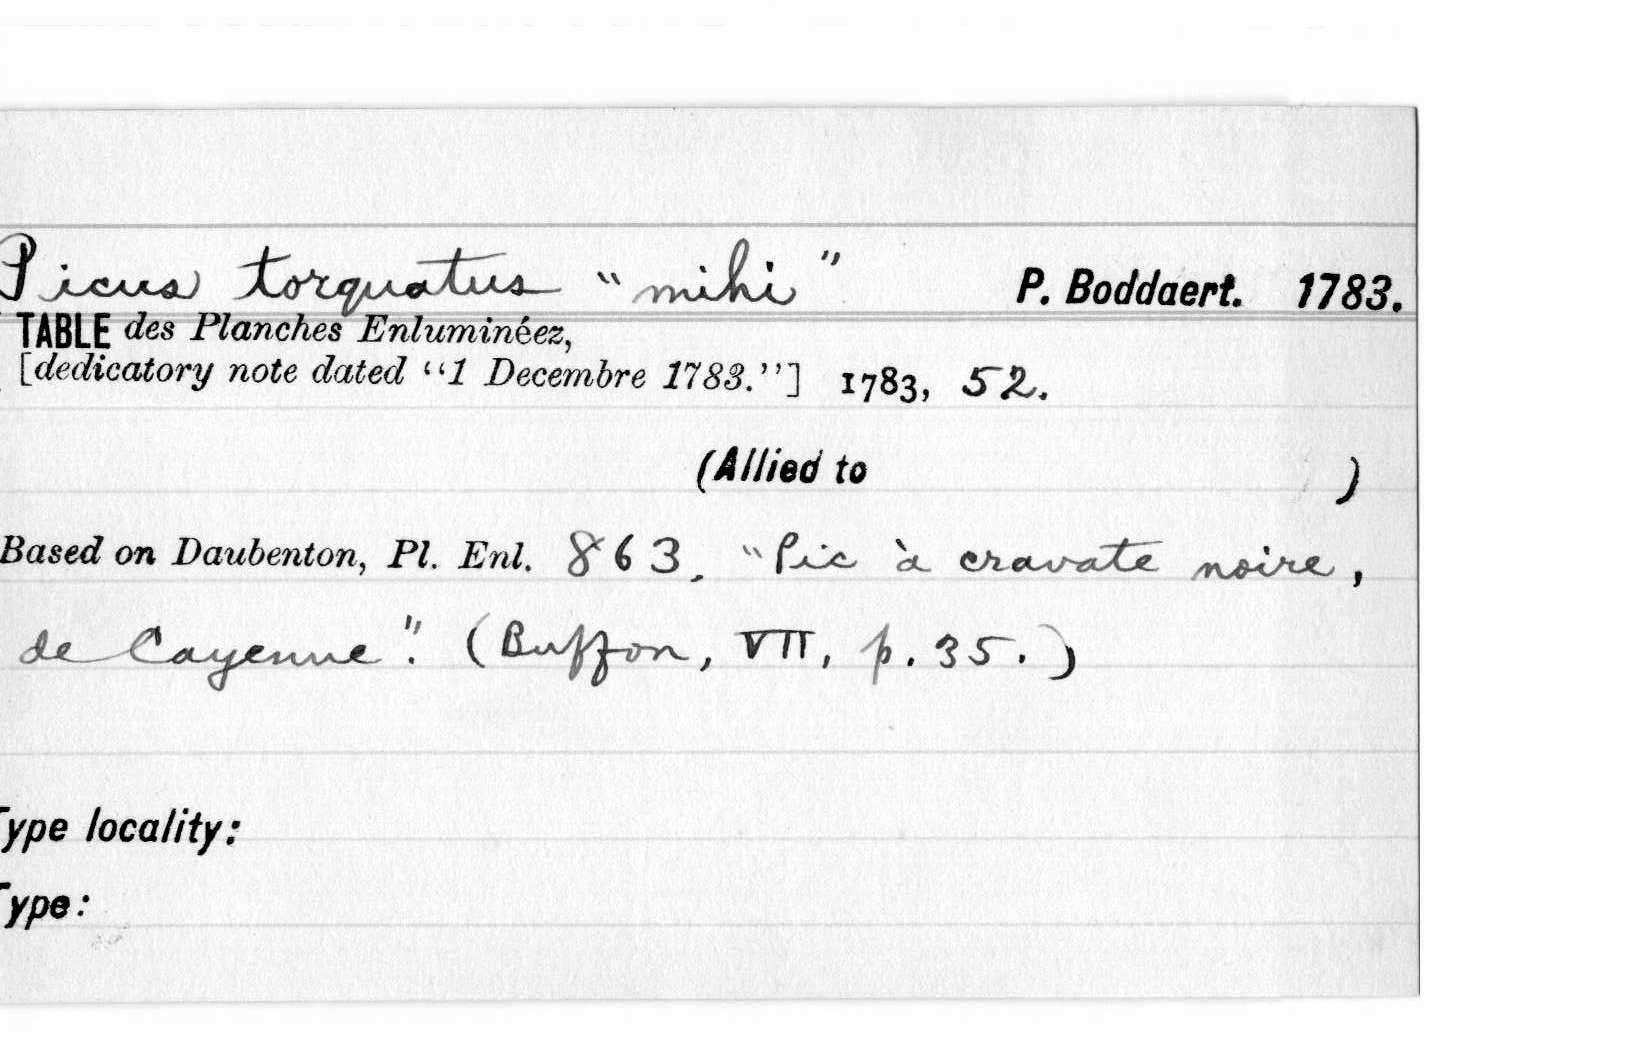 Picus torquatus "mihi" P. Boddaert. 1783.
TABLE des Planches Enluminéez,
[dedicatory note dated "1 Decembre 1783."] 1783, 52.
(Allied to )
Based on Daubenton, Pl. Enl. 863, "Pic à cravate noire,
de Cayenne". (Buffon, VII, p. 35.)
Type locality:
Type: